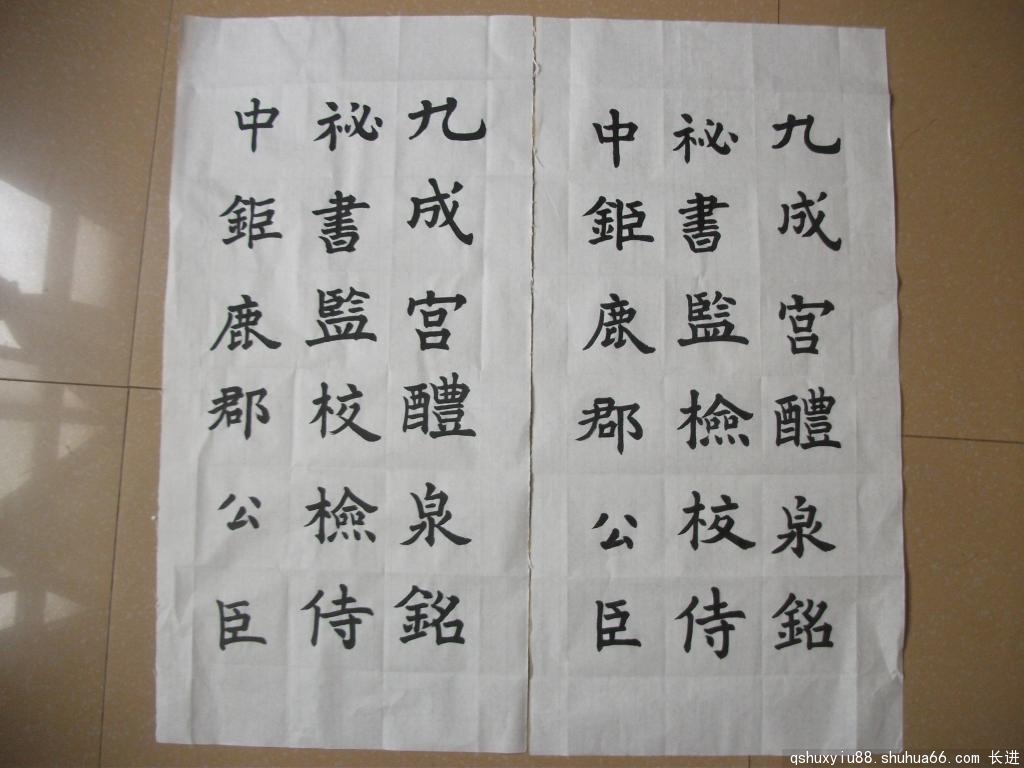 九成宮醴泉銘
祕書監檢校侍
中鉅鹿郡公臣
九成宮醴泉銘
祕書監校檢侍
中鉅鹿郡公臣
qshuxyiu88.shuhua66.com 长进